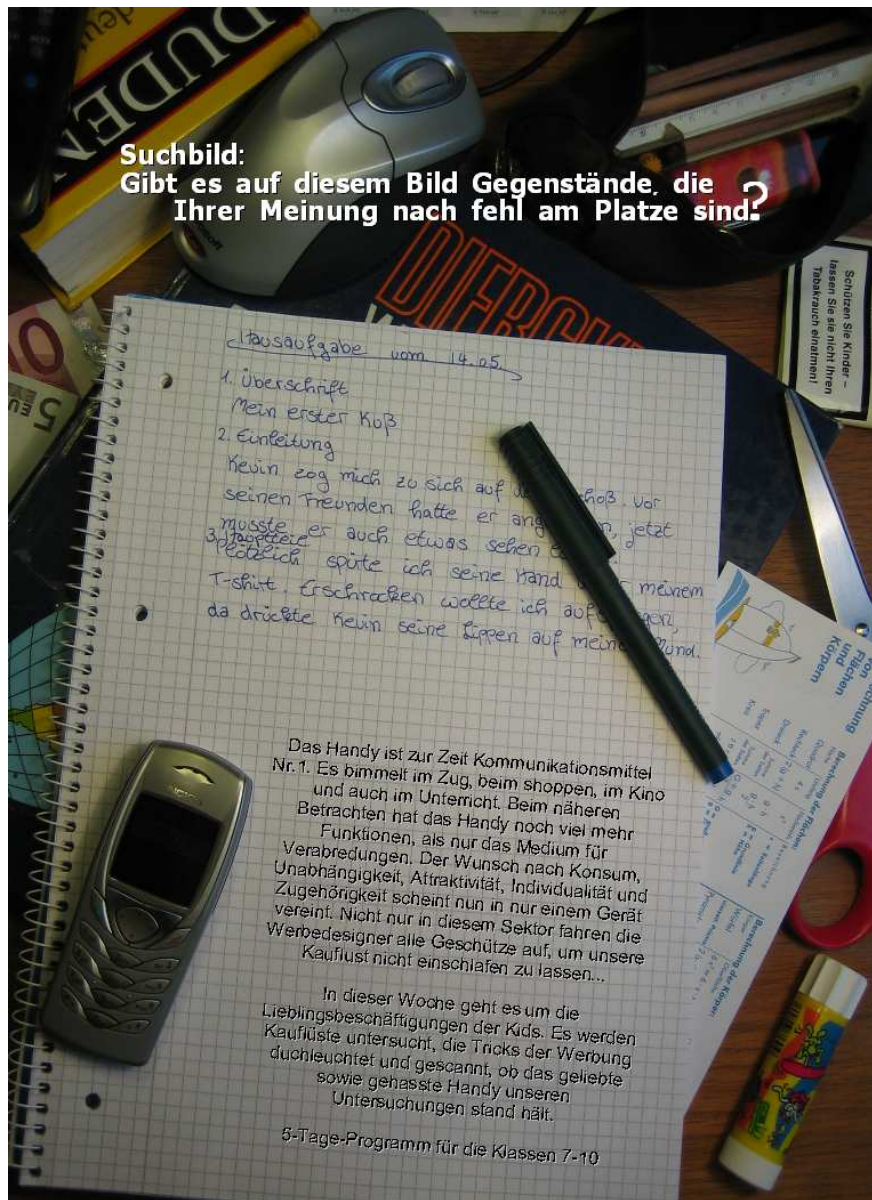 deu
DUDEN
Suchbild:
Gibt es auf diesem Bild Gegenstände, die
Ihrer Meinung nach fehl am Platze sind?
DIERCKE
Schützen Sie Kinder –
lassen Sie sie nicht Ihren
Tabakrauch einatmen!
10
5 EURO
Hausaufgabe vom 14.05.
1. Überschrift
Mein erster Kuß
2. Einleitung
Kevin zog mich zu sich auf choß. vor
seinen Freunden hatte er ang n, jetzt
musste er auch etwas sehen
3. Hauptteil
Plötzlich spürte ich seine Hand meinem
T-Shirt. Erschrocken wollte ich auf gen,
da drückte Kevin seine Lippen auf meine Mund.
von
Flächen
und
Körpern
Berechnung der Flächen:
Berechnung der Körper:
NOKIA
Das Handy ist zur Zeit Kommunikationsmittel
Nr.1. Es bimmelt im Zug, beim shoppen, im Kino
und auch im Unterricht. Beim näheren
Betrachten hat das Handy noch viel mehr
Funktionen, als nur das Medium für
Verabredungen. Der Wunsch nach Konsum,
Unabhängigkeit, Attraktivität, Individualität und
Zugehörigkeit scheint nun in nur einem Gerät
vereint. Nicht nur in diesem Sektor fahren die
Werbedesigner alle Geschütze auf, um unsere
Kauflust nicht einschlafen zu lassen...
In dieser Woche geht es um die
Lieblingsbeschäftigungen der Kids. Es werden
Kauflüste untersucht, die Tricks der Werbung
duchleuchtet und gescannt, ob das geliebte
sowie gehasste Handy unseren
Untersuchungen stand hält.
5-Tage-Programm für die Klassen 7-10